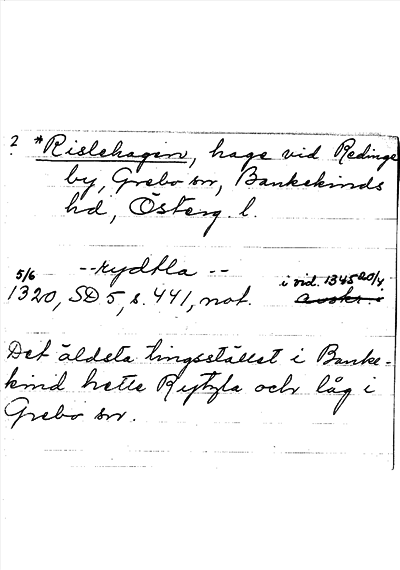 ? *Rislehagen, hage vid Redinge
by, Grebo sn, Bankekinds
hd, Österg. l.
--rydhla --
5/6 i vid. 1345 20/4.
1320, SD 5, s. 441, not. avskr.
Det äldsta tingsstället i Banke-
kind hette Rytzla och låg i
Grebo sn.